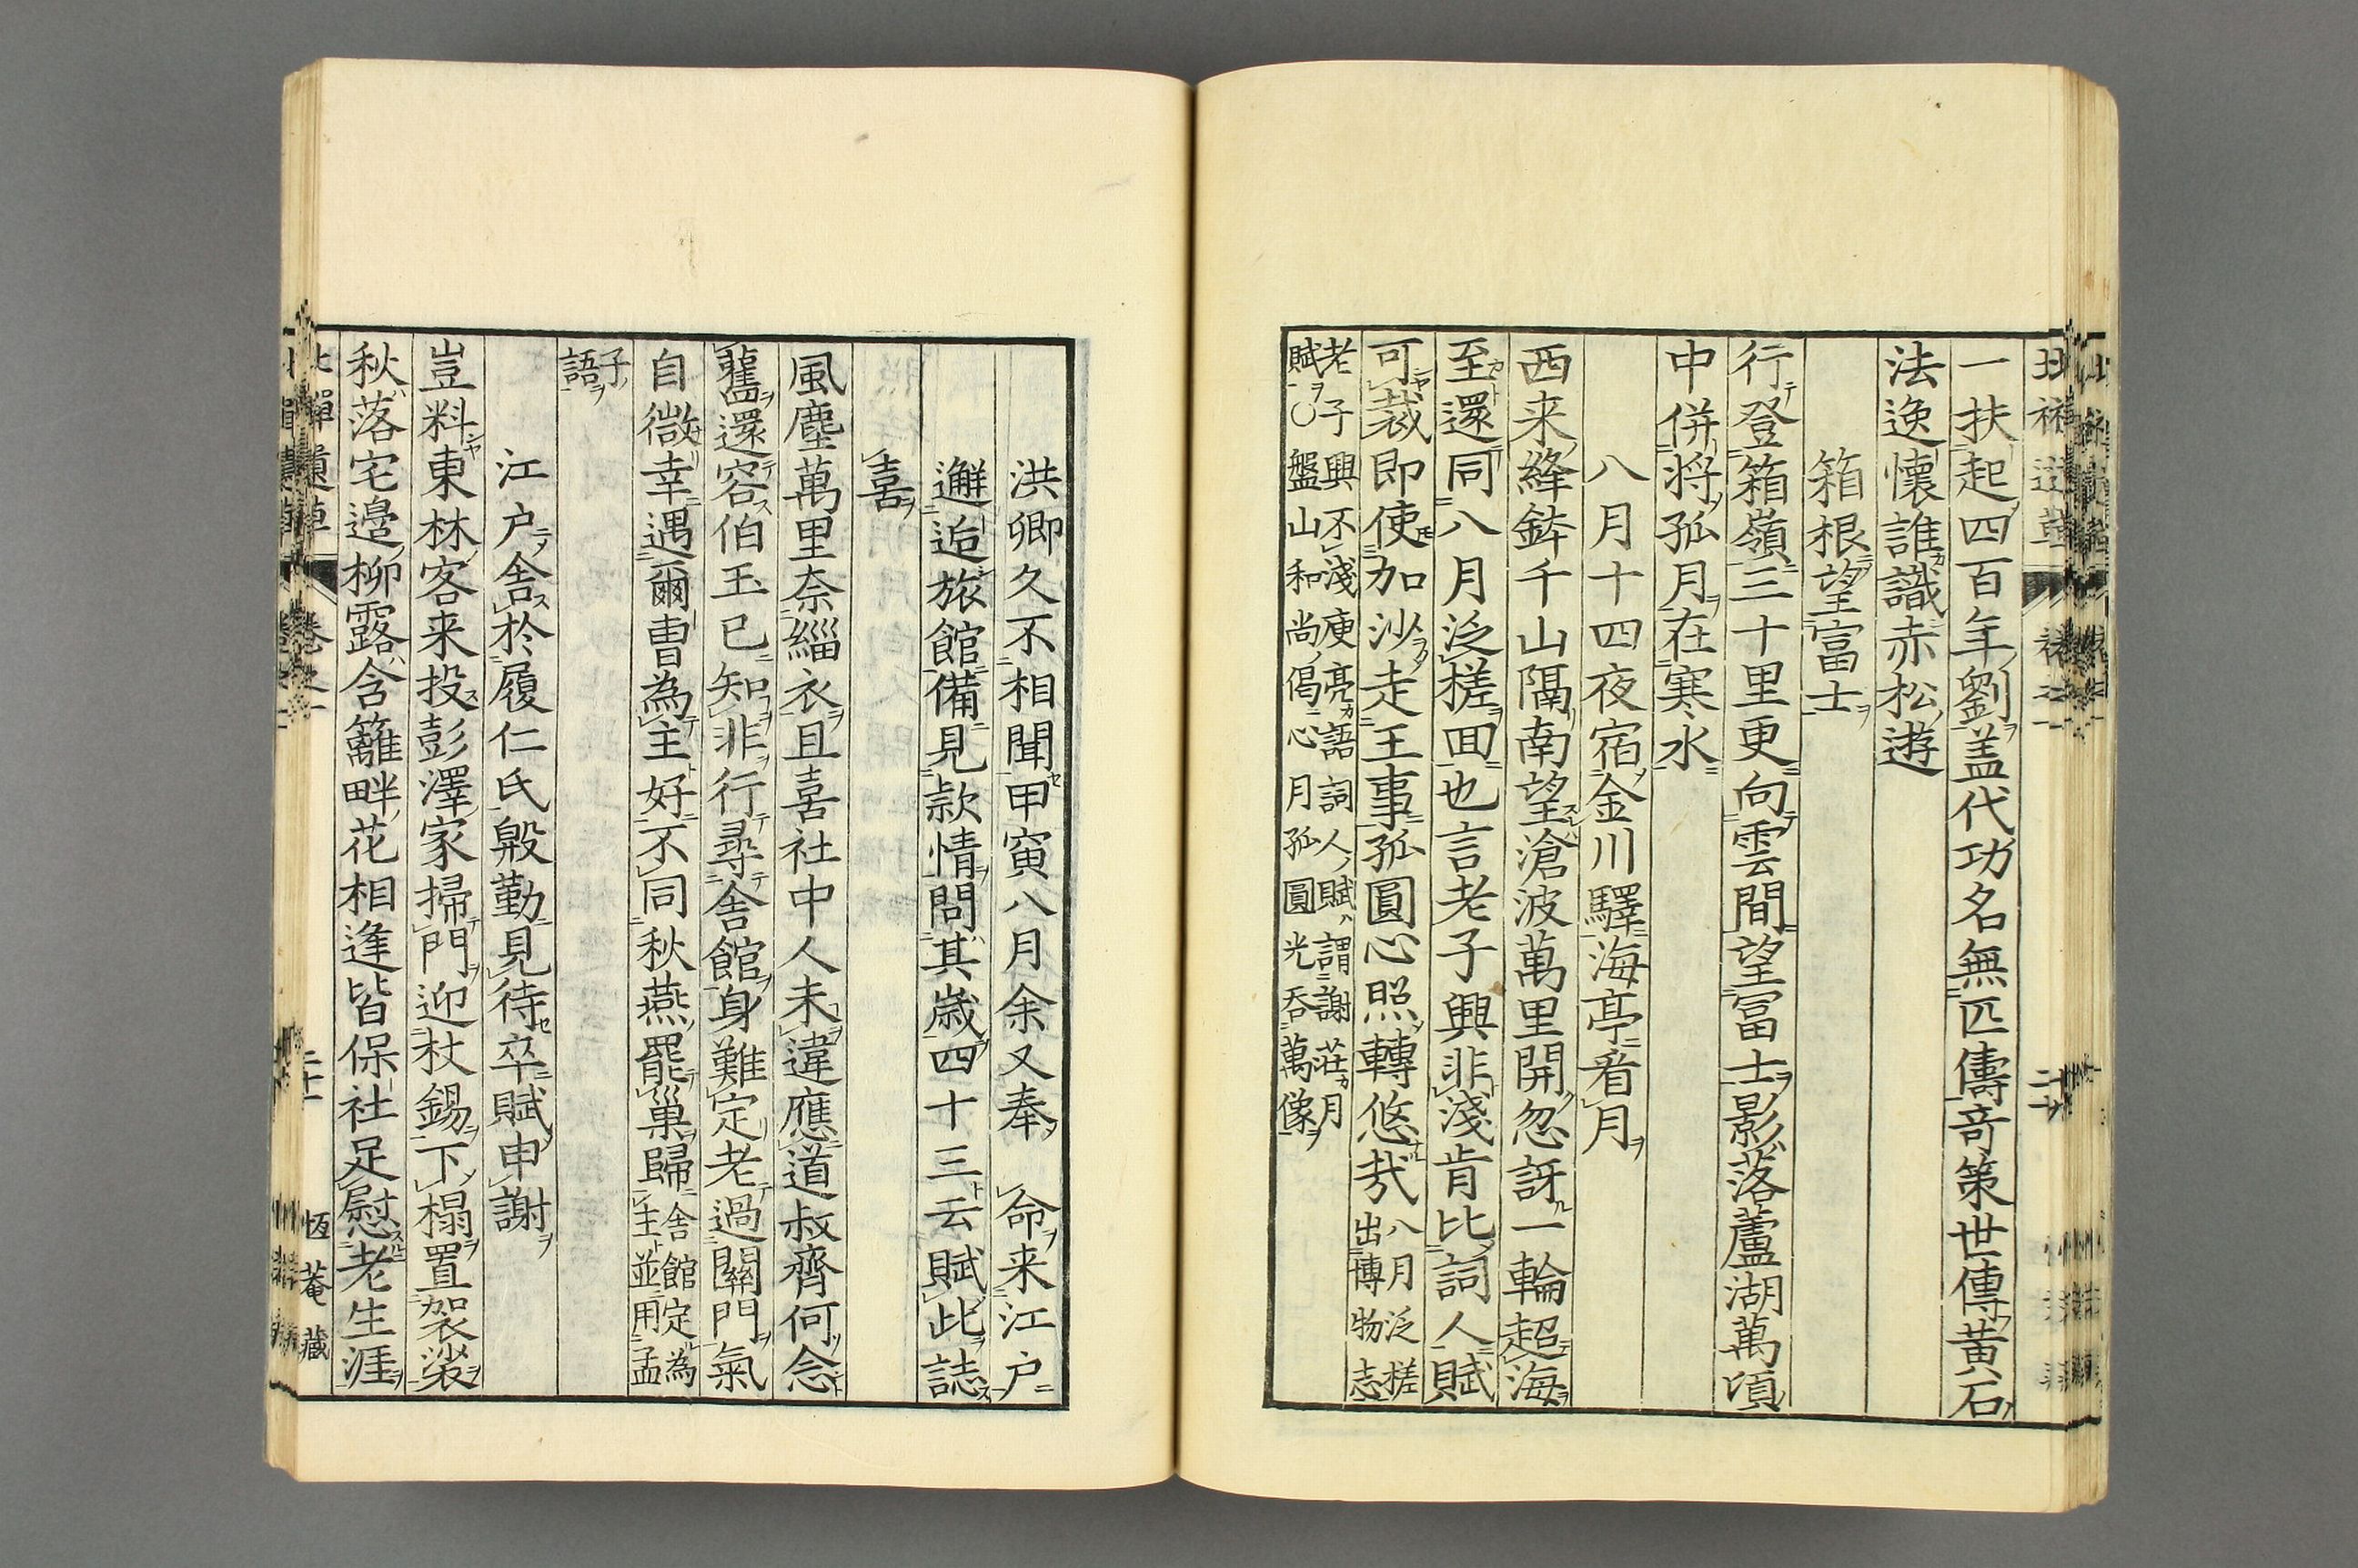 一扶起四百年劉盖代功名無匹儔奇策世傳黄石
法逸懐誰識赤松遊
箱根望富士
行登箱嶺三十里更向雲間望冨士影落蘆湖萬頃
中併将孤月在寒水
八月十四夜宿金川驛海亭看月
西来絳鉢千山隔南望滄波萬里開忽訝一輪超海
至還同八月泛槎囬也言老子興非淺肯比詞人賦
可裁即使加沙走王事孤圓心照轉悠哉八月泛槎
出博物志
老子興不淺庾亮語詞人賦謂謝莊月
賦〇盤山和尚偈心月孤圓光吞萬像
洪卿久不相聞甲寅八月余又奉命来江户
邂逅旅館備見款情問其歳四十三云賦此誌
喜
風塵萬里奈緇衣且喜社中人未違應道叔齊何念
舊還容伯玉已知非行尋舎館身難定老過關門氣
自微幸遇爾曹為主好不同秋燕罷巢歸舎館定為
主並用孟
子
語
江户舎於履仁氏慇勤見待卒賦申謝
豈料東林客来投彭澤家掃門迎杖錫下榻置袈裟
秋落宅邉柳露含籬畔花相逢皆保社足慰老生涯
恆菴藏